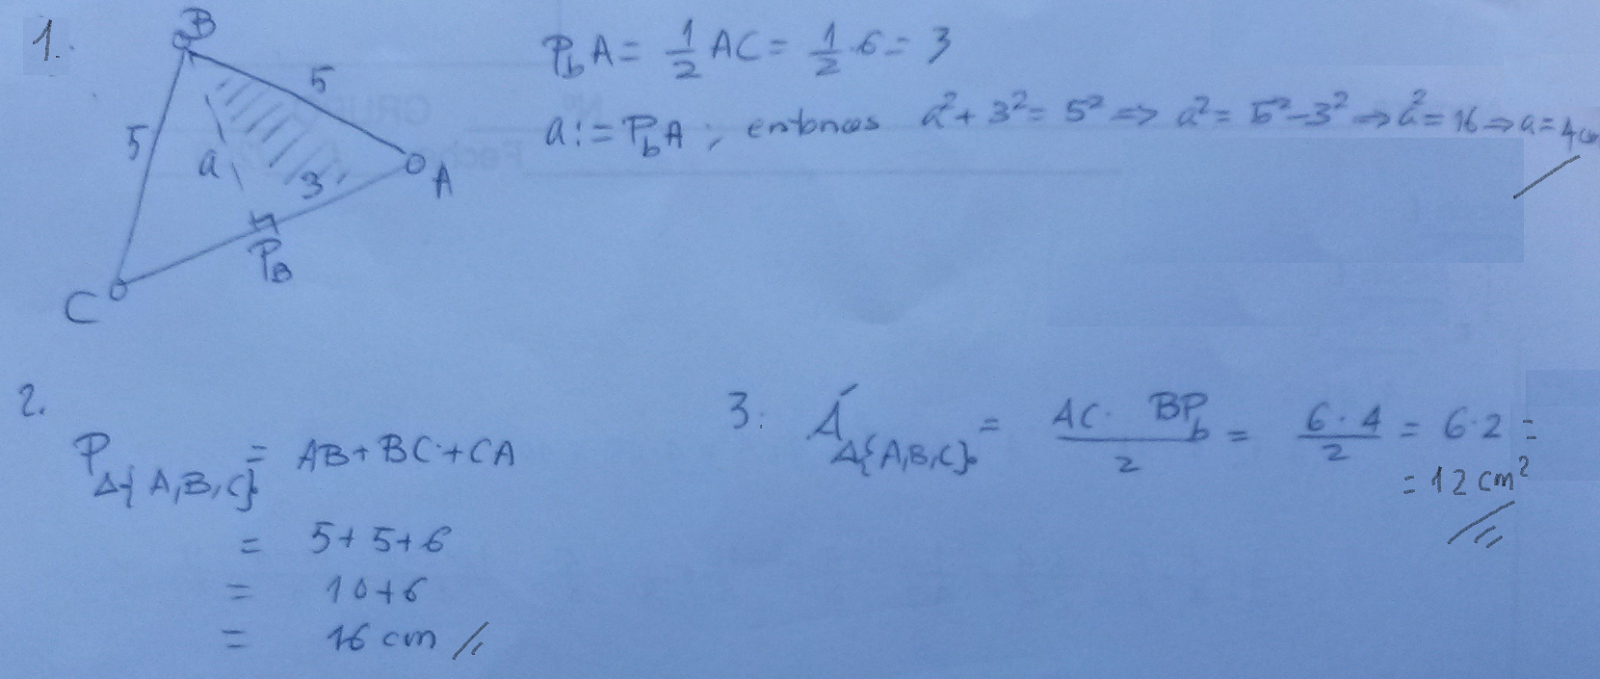 1.
B
5
5
a
3
A
P_B
C
P_b A = 1/2 AC = 1/2 · 6 = 3
a := P_b A ; entonces a² + 3² = 5² ⇒ a² = 5² - 3² ⇒ a² = 16 ⇒ a = 4 cm
2.
P_Δ{A,B,C} = AB + BC + CA
= 5 + 5 + 6
= 10 + 6
= 16 cm //
3. Á_Δ{A,B,C} = (AC · BP_b)/2 = (6 · 4)/2 = 6 · 2 =
= 12 cm²